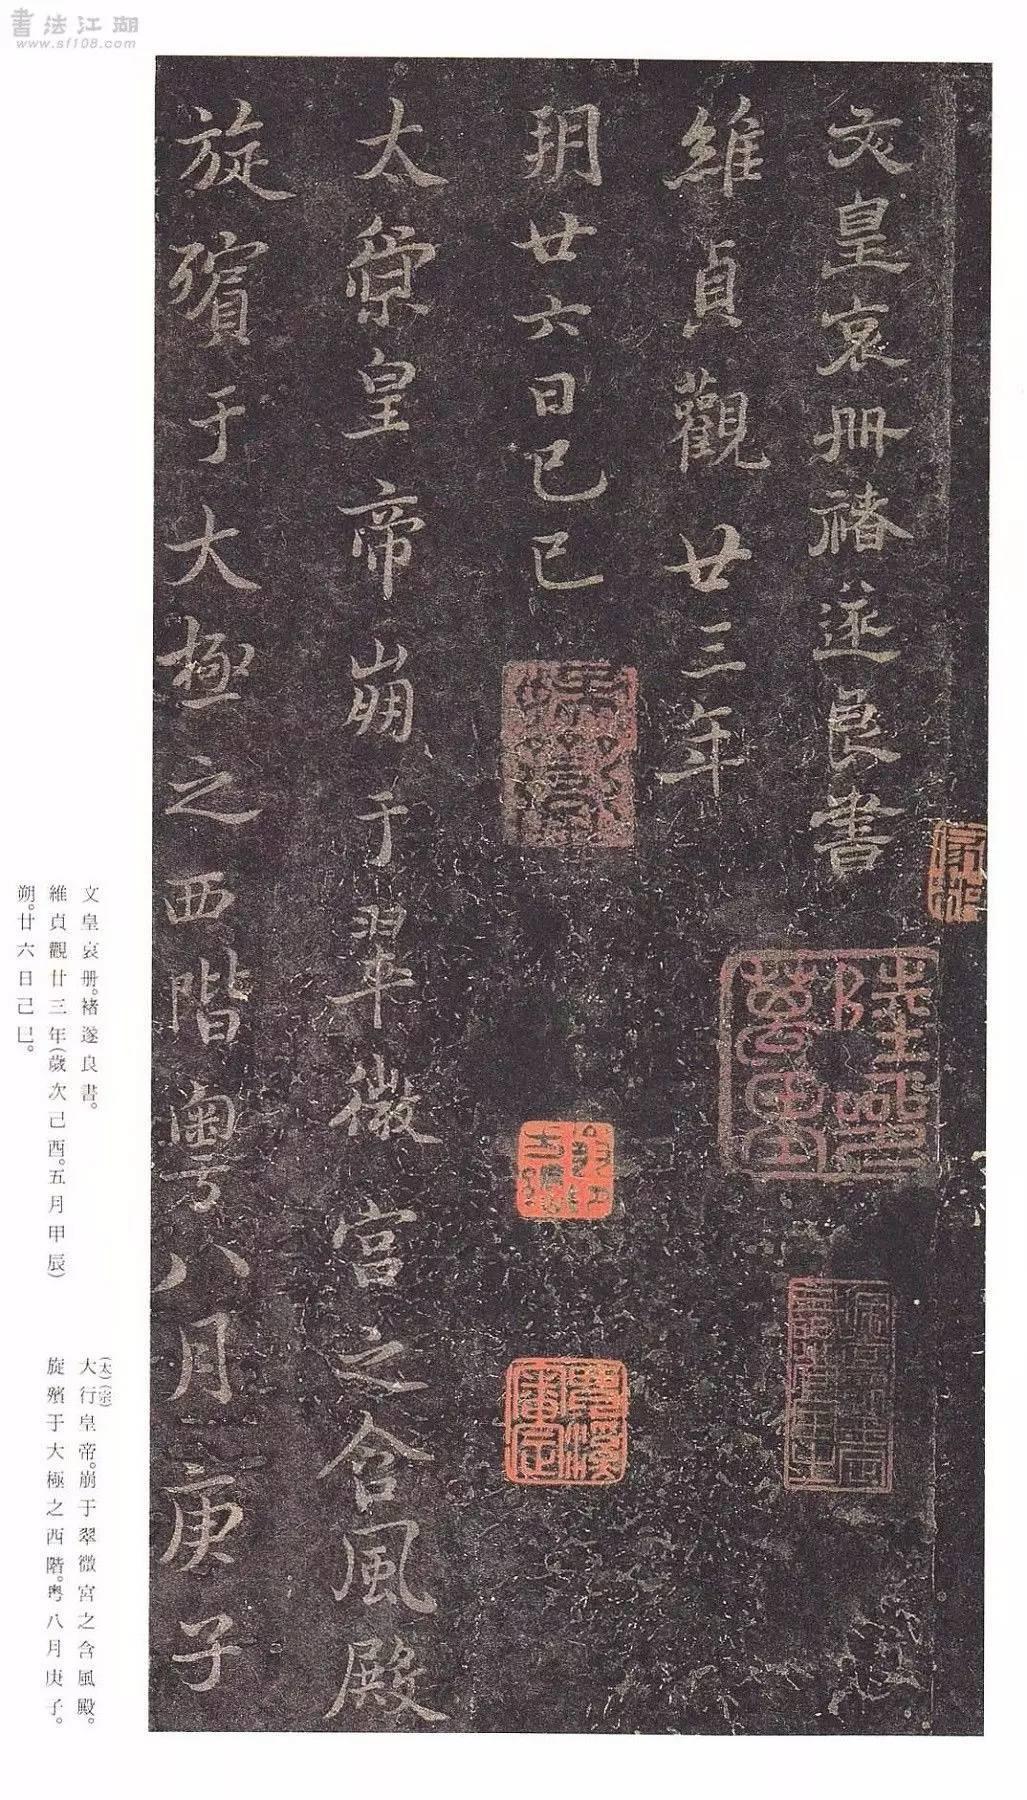 書法江湖
www.sf108.com
文皇哀册褚遂良書
維貞觀廿三年
玥廿六日已已
太宗皇帝崩于翠微宮之含風殿
旋殯于大極之西階粵八月庚子
文皇哀册。褚遂良書。
維貞觀廿三年(歲次己酉。五月甲辰)
朔。廿六日己巳。
(太)(宗)
大行皇帝。崩于翠微宮之含風殿。
旋殯于大極之西階。粵八月庚子。